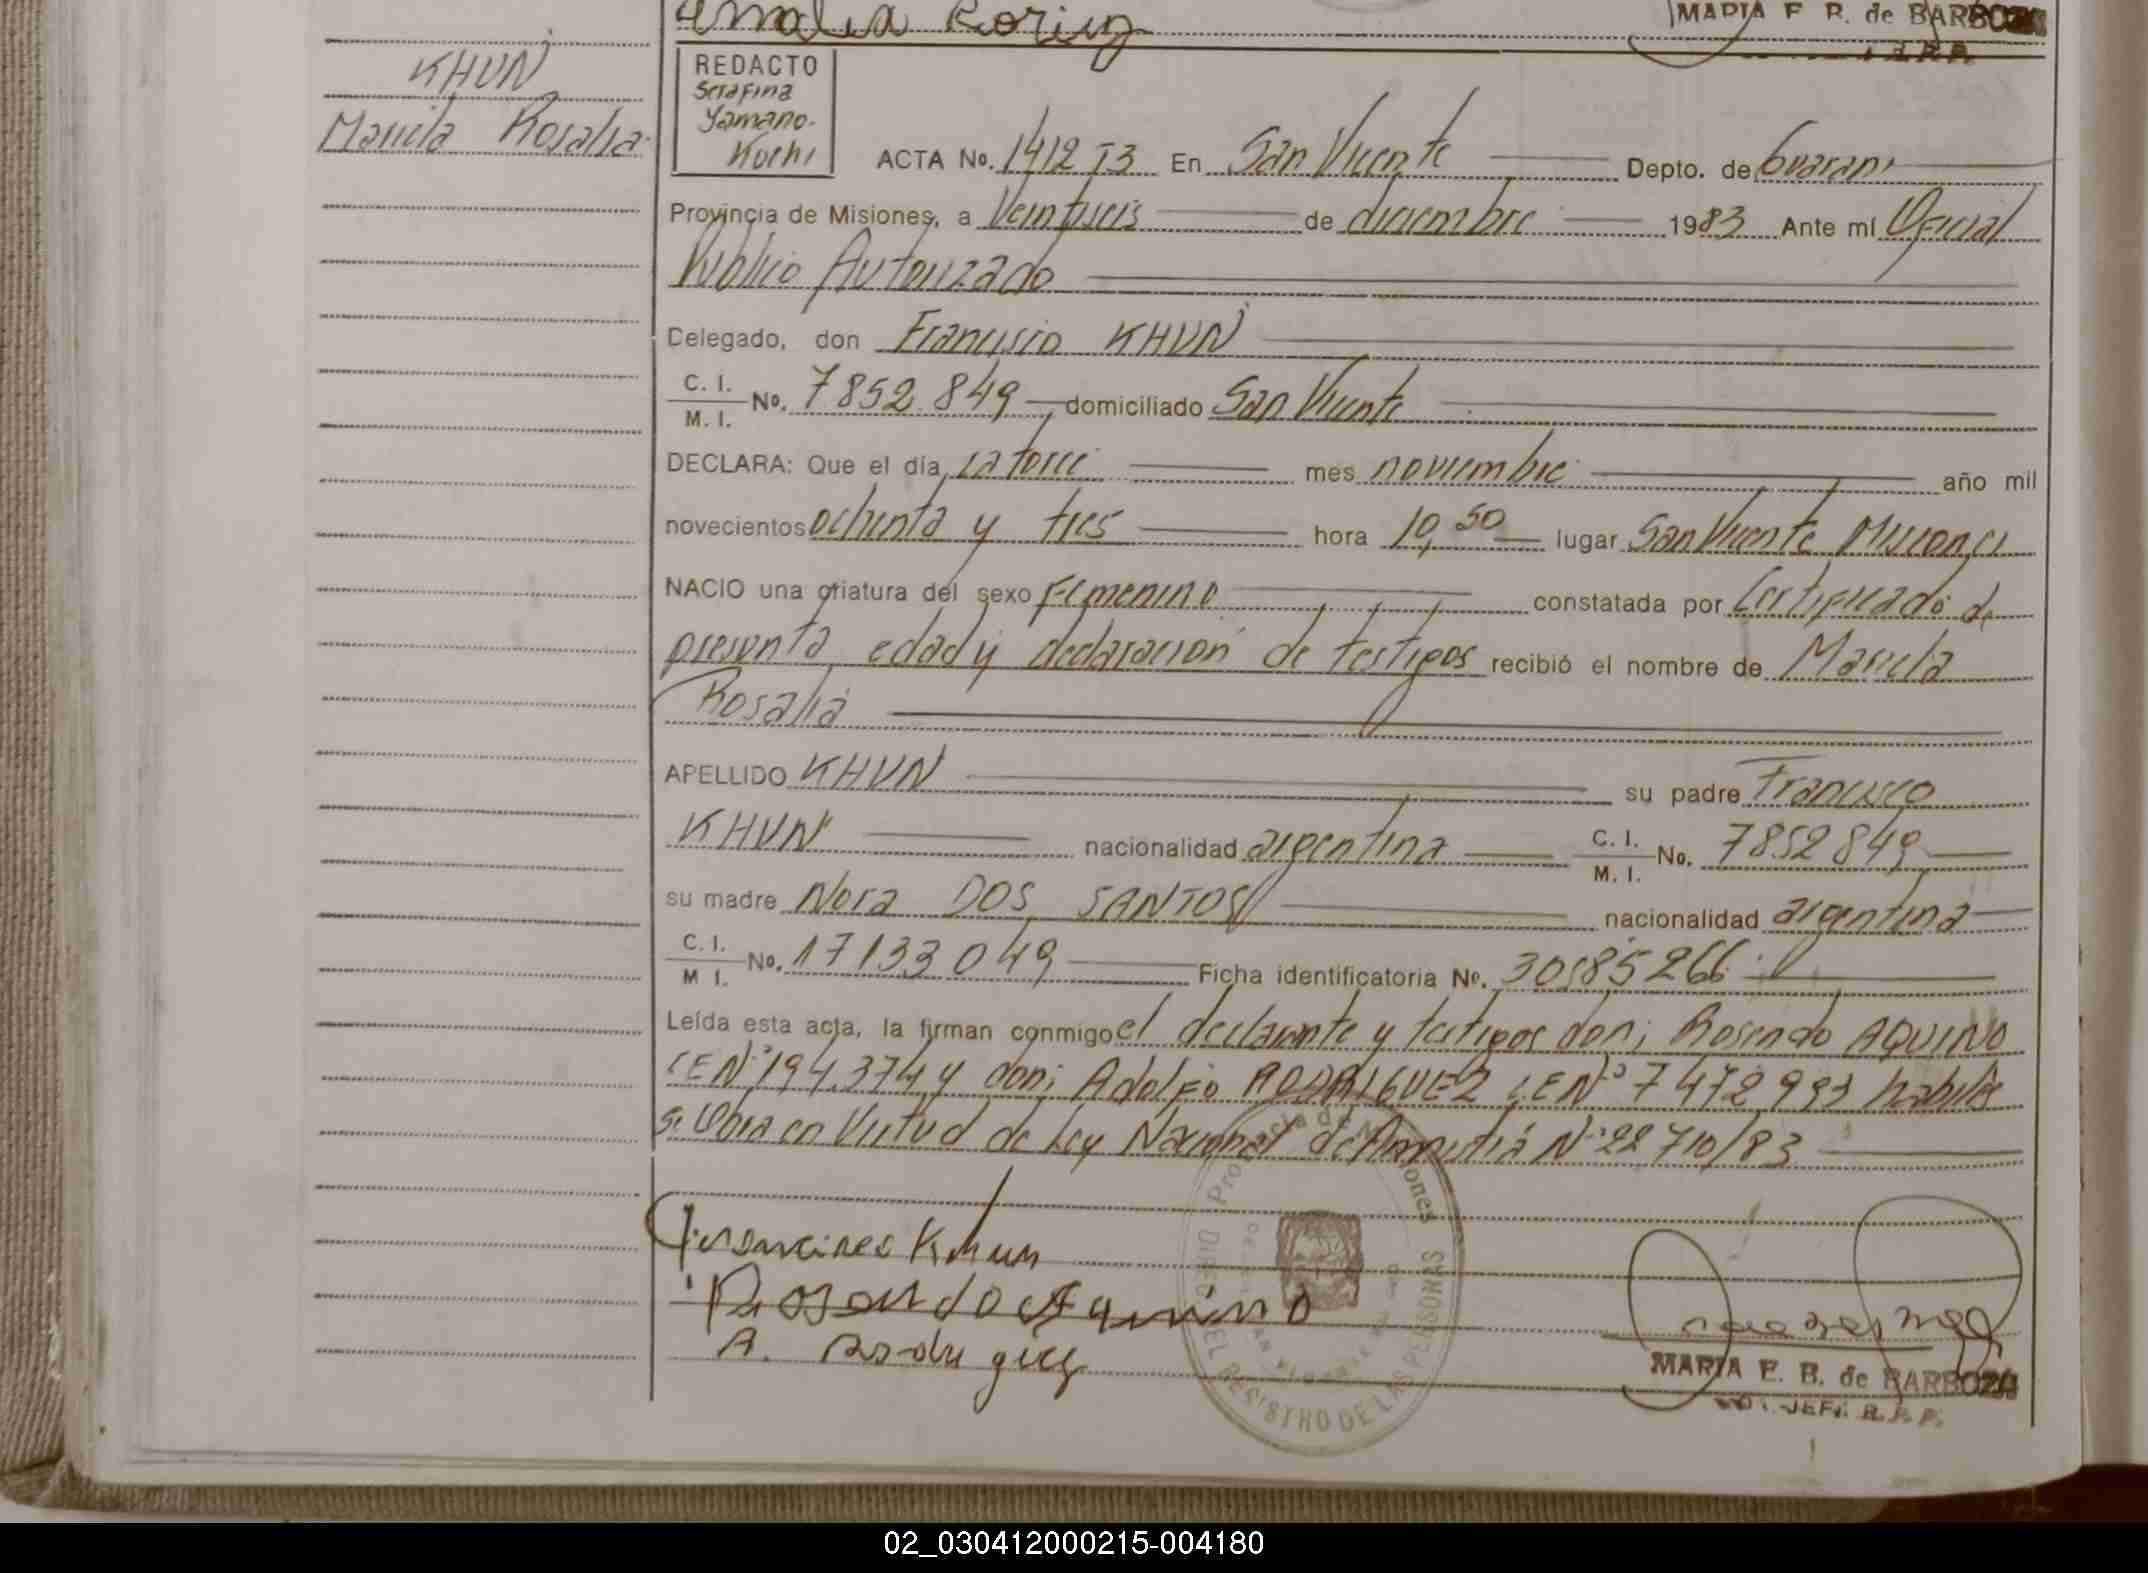 Amalia
MARIA E. B. de BARBOZA
KHUN
Mariela Rosalia
REDACTO
Serafina
Yamano-
Kochi
ACTA No. 1412 T3 En San Vicente Depto. de Guarani
Provincia de Misiones, a Veintiseis de diciembre 1983 Ante mí Oficial
Publico Autorizado
Delegado, don Francisco KHUN
C. I.
M. I. No. 7852.849 domiciliado San Vicente
DECLARA: Que el día catorce mes noviembre año mil
novecientos ochenta y tres hora 10,50 lugar San Vicente Misiones
NACIO una criatura del sexo Femenino constatada por Certificado de
presunta edad y declaración de testigos recibió el nombre de Mariela
Rosalia
APELLIDO KHUN su padre Francisco
KHUN nacionalidad argentina C. I. M. I. No. 7852849
su madre Nora DOS SANTOS nacionalidad argentina
C. I. M I. No. 17133049 Ficha identificatoria No. 30.185266
Leída esta acta, la firman conmigo el declarante y testigos don; Rosendo AQUINO
y don; Adolfo RODRIGUEZ 7472993
en Virtud de Ley Nacional de Amnistiá Nº 22710/83
Provincia de Misiones
REGISTRO DE LAS PERSONAS
Khun
Rosendo Aquino
A. Rodriguez
MARIA E. B. de BARBOZA
JEFE R.P.P.
02_030412000215-004180